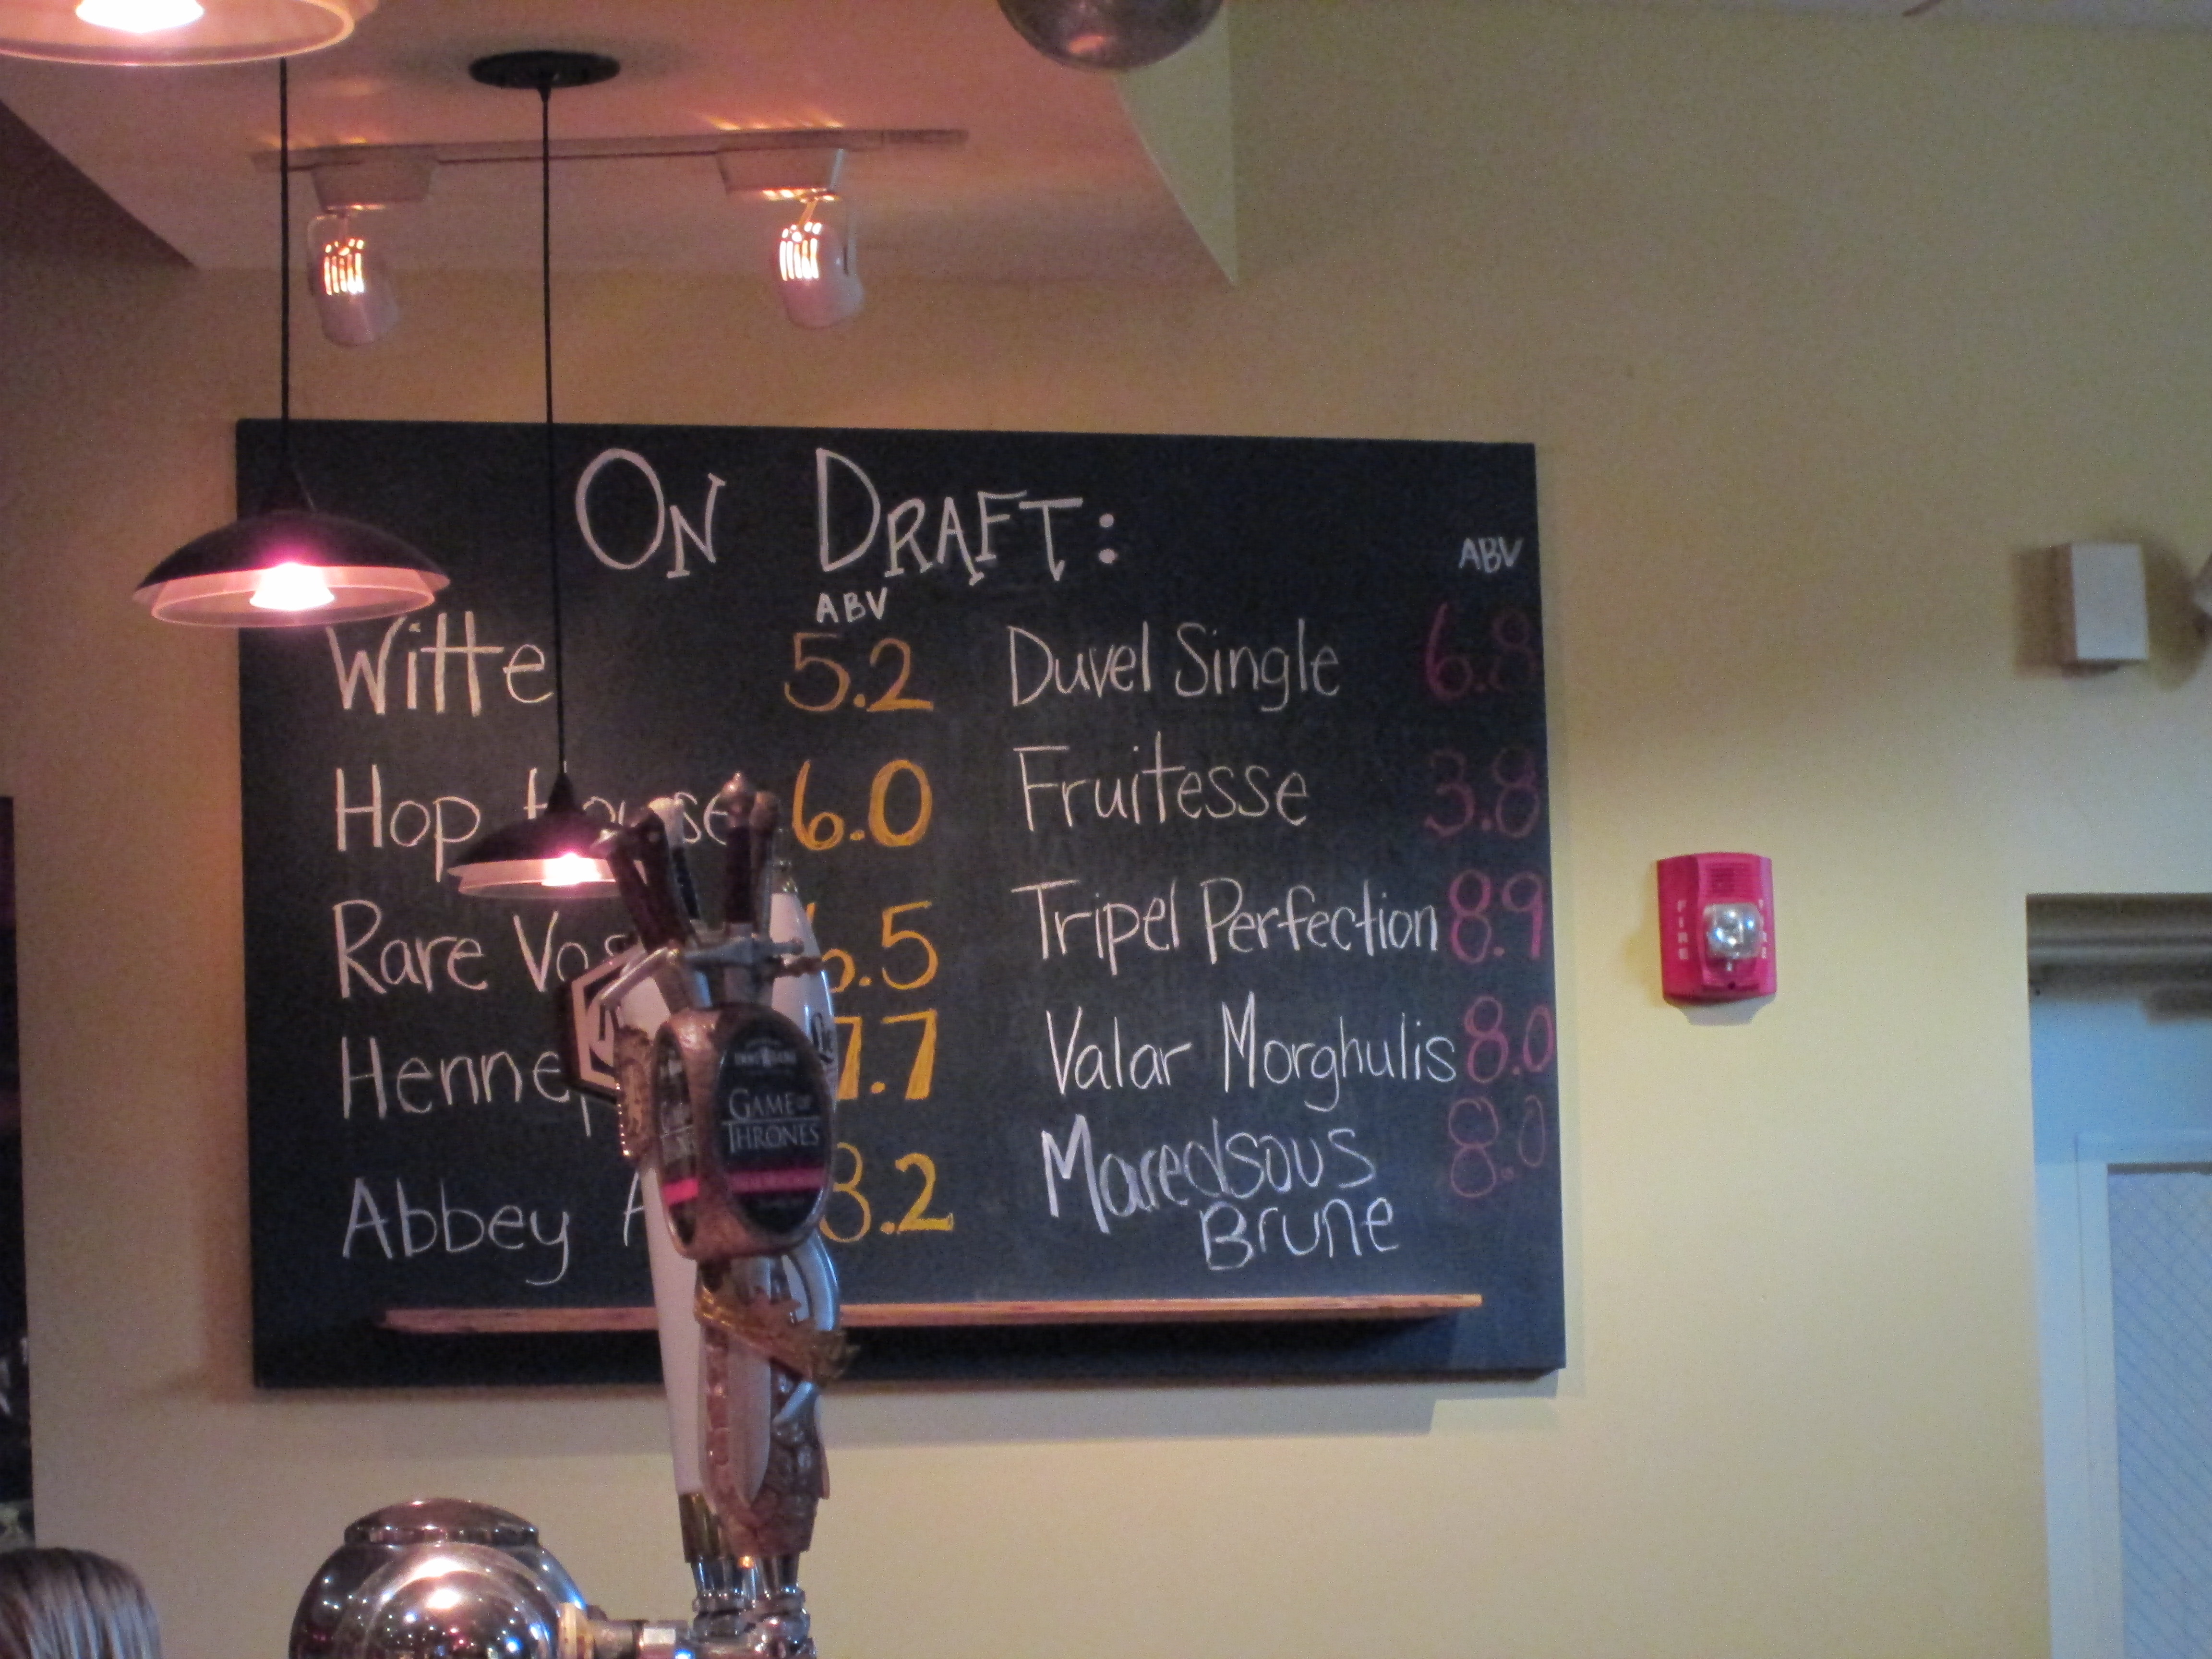 ON DRAFT:
ABV
Witte 5.2
Hop House 6.0
Rare Vos 6.5
7.7
Abbey 8.2
ABV
Duvel Single 6.8
Fruitesse 3.8
Tripel Perfection 8.9
Valar Morghulis 8.0
Maredsous 8.0
Brune
GAME OF
THRONES
FIRE
FIRE